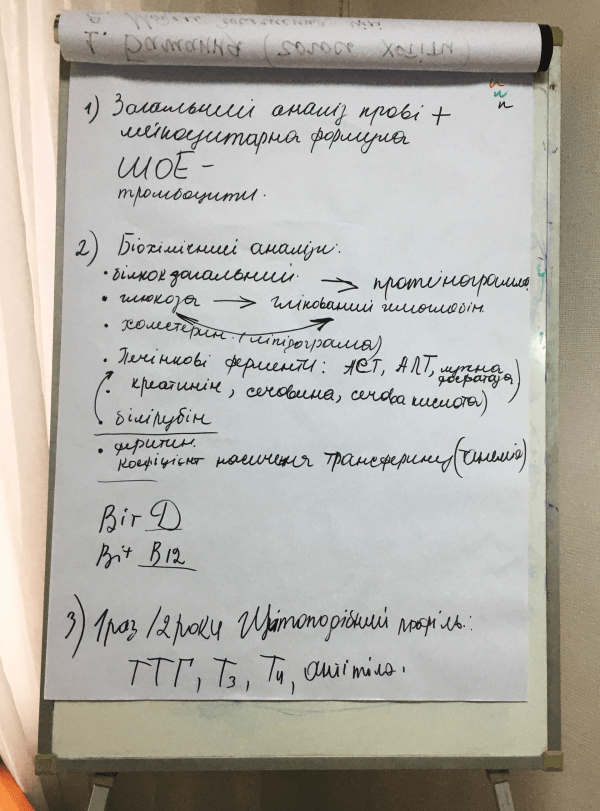 1) Загальний аналіз крові +
лейкоцитарна формула
ШОЕ –
тромбоцити.
2) Біохімічний аналіз:
• білкок загальний. → протеінограмма
• глюкоза → глікований гемоглобін
• холестерин. (ліпідограма)
• Печінкові ферменти: АСТ, АЛТ, лужна фосфатаза)
• креатинін, сечовина, сечова кислота)
• білірубін
• феритин.
коефіцієнт насичення трансферину (анемія)
Віт D
Віт B12
3) 1 раз / 2 роки Щитоподібний профіль:
ТТГ, Т3, Т4, антитіла.